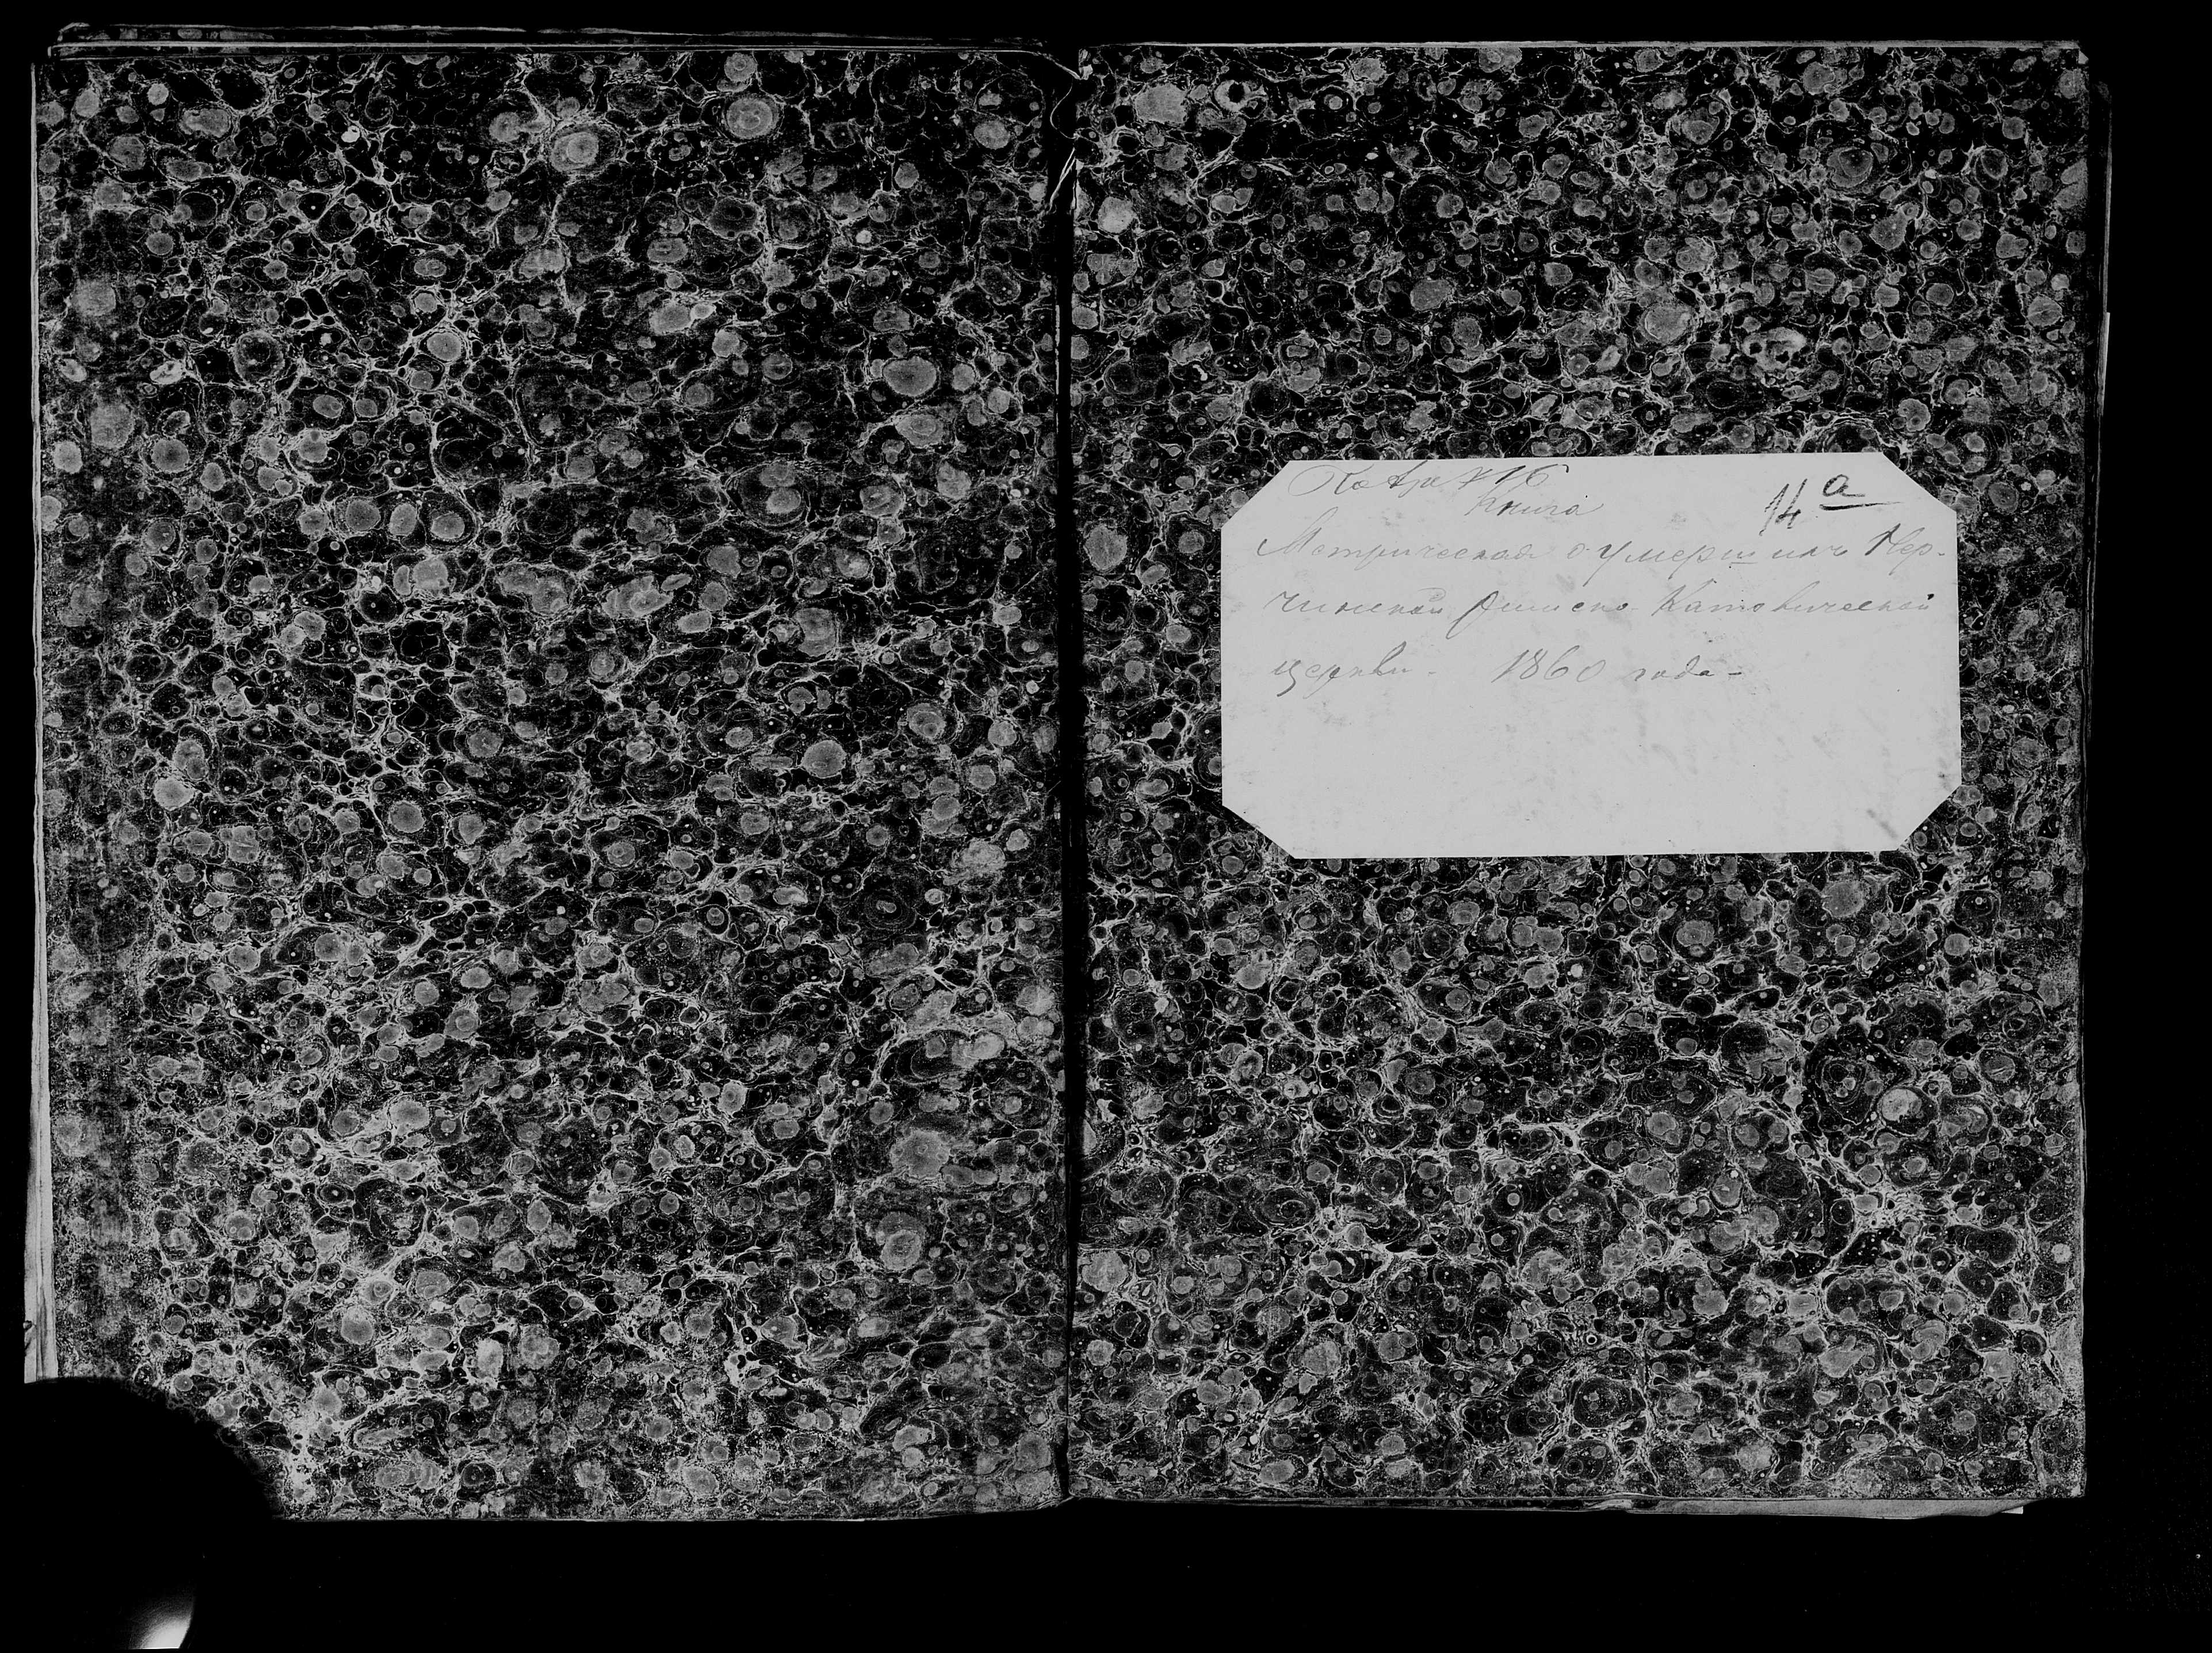 № 16
Книга
14 а
Метрическая о умершихъ Нер-
чинской Римско-Католической
церкви - 1860 года -